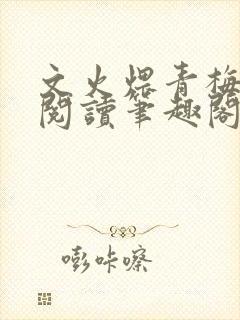 文火煨青梅
閱讀筆趣閣
嘭咔嚓